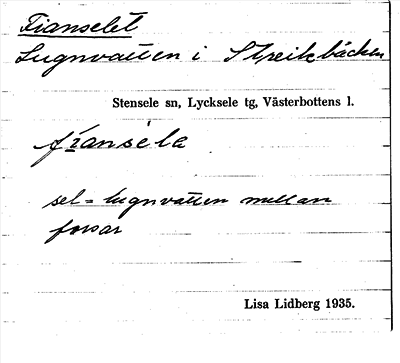 Fianselet
Lugnvatten i Streikbäcken
Stensele sn, Lycksele tg, Västerbottens l.
sel = lugnvatten mellan
forsar
Lisa Lidberg 1935.